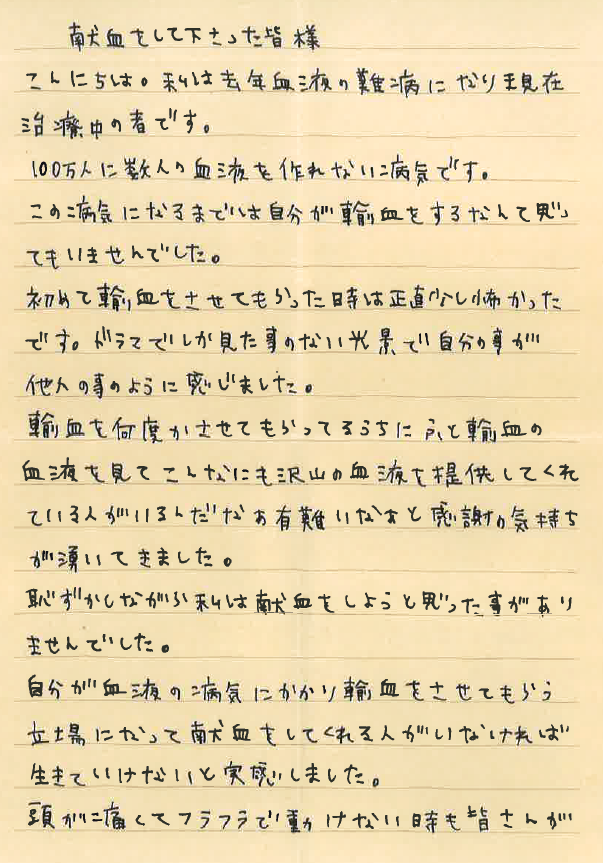 献血をして下さった皆様
こんにちは。私は去年血液の難病になり現在
治療中の者です。
100万人に数人の血液を作れない病気です。
この病気になるまでは自分が輸血をするなんて思っ
てもいませんでした。
初めて輸血をさせてもらった時は正直少し怖かった
です。ドラマでしか見た事のない光景で自分の事が
他人の事のように感じました。
輸血を何度かさせてもらってるうちにふと輸血の
血液を見てこんなにも沢山の血液を提供してくれ
ている人がいるんだなぁ有難いなぁと感謝の気持ち
が湧いてきました。
恥ずかしながら私は献血をしようと思った事があり
ませんでした。
自分が血液の病気にかかり輸血をさせてもらう
立場になって献血をしてくれる人がいなければ
生きていけないと実感しました。
頭が痛くてフラフラで動けない時も皆さんが